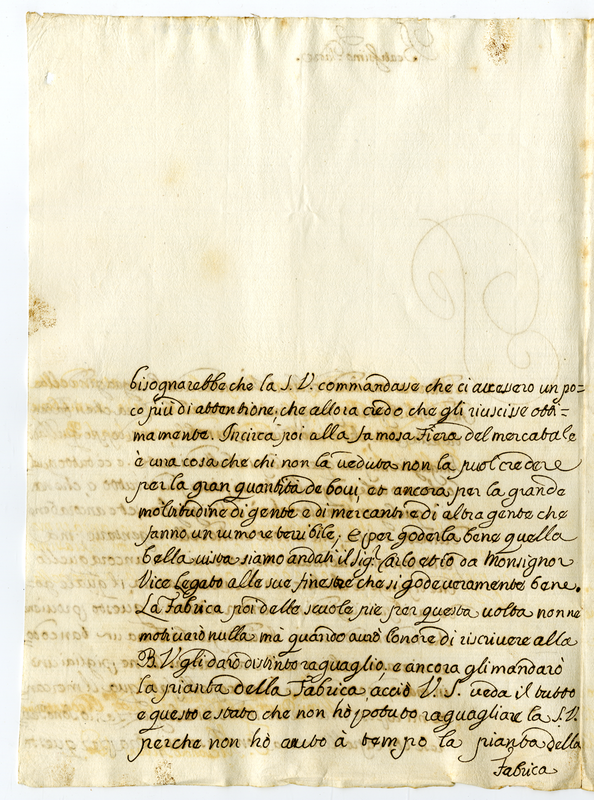 bisognarebbe che la S. V. commandasse che ci avessero un po=
co più di attentione, che allora credo che gli riuscisse otti=
mamente. Incirca poi alla famosa Fiera del mercatale
è una cosa che chi non la veduta non la puol credere
per la gran quantità de bovi, et ancora per la grande
moltitudine di gente e di mercanti e di altra gente che
fanno un rumore terribile, e per goderla bene quella
bella vista siamo andati il Sig.r Carlo et io da Monsignor
Vice Legato alle sue finestre che si gode veramente bene.
La Fabrica poi delle scuole pie per questa volta non ne
motivarò nulla mà quando avrò l'onore di riscrivere alla
B. V. gli darò distinto raguaglio. e ancora gli mandarò
la pianta della Fabrica acciò V. S. veda il tutto
e questo e stato che non hò potuto raguagliare la S. V.
perche non hò auto à tempo la pianta della
Fabrica